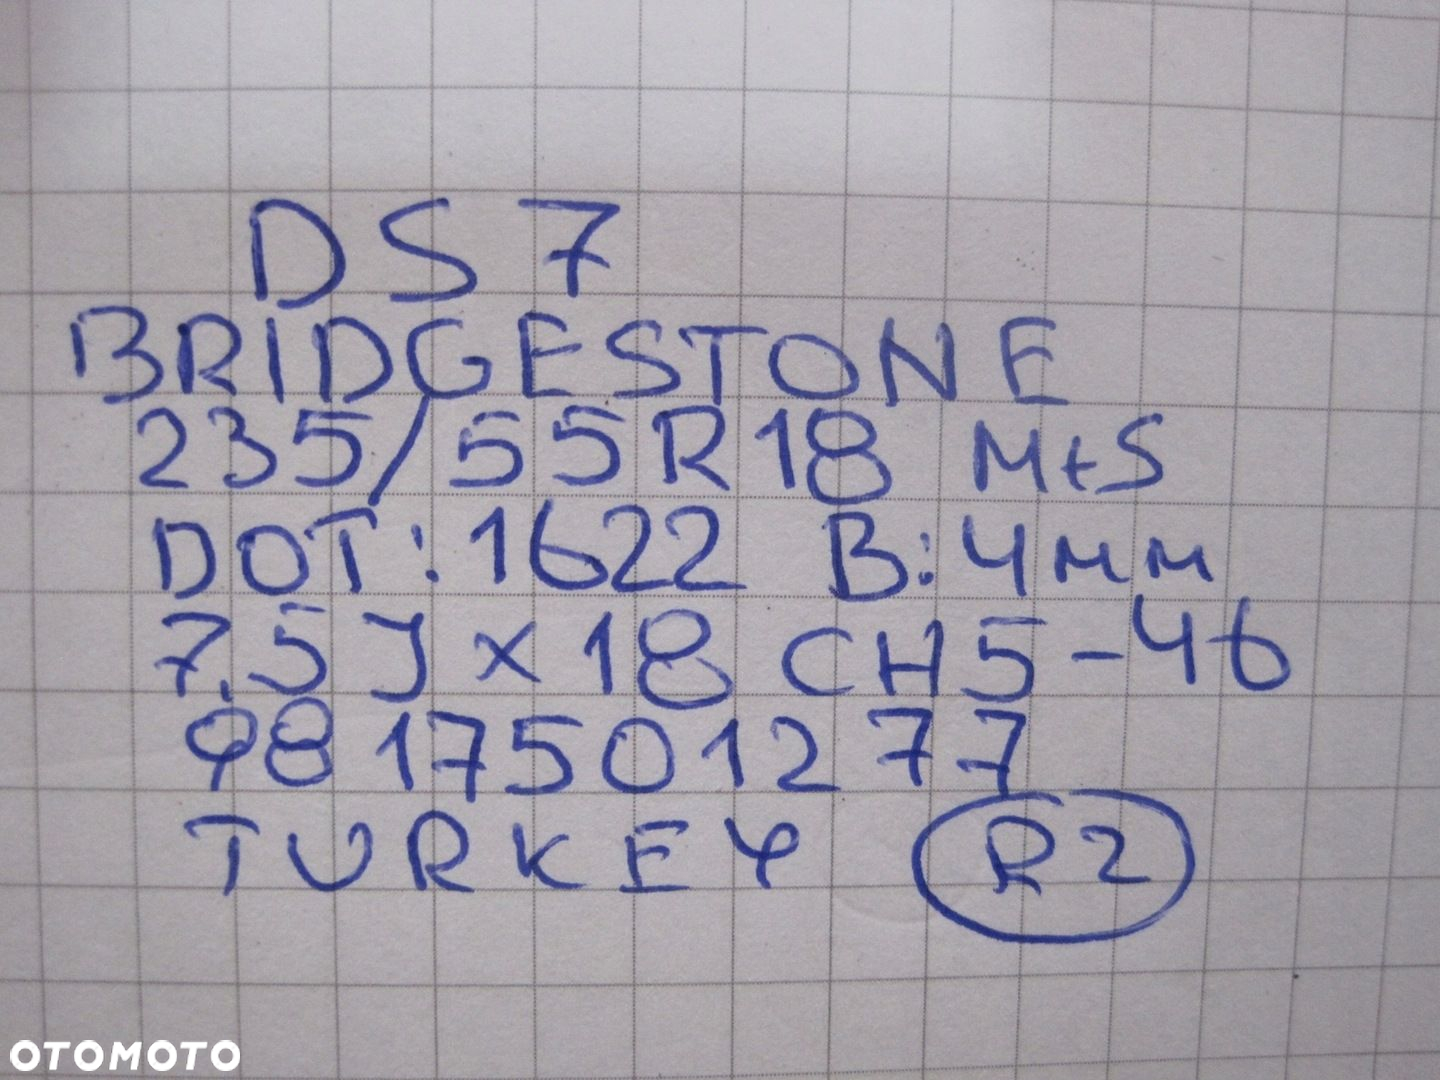 DS7
BRIDGESTONE
235/55R18 M+S
DOT: 1622 B: 4mm
7.5J x 18 CH5-46
9817501277
TURKEY R2
OTOMOTO